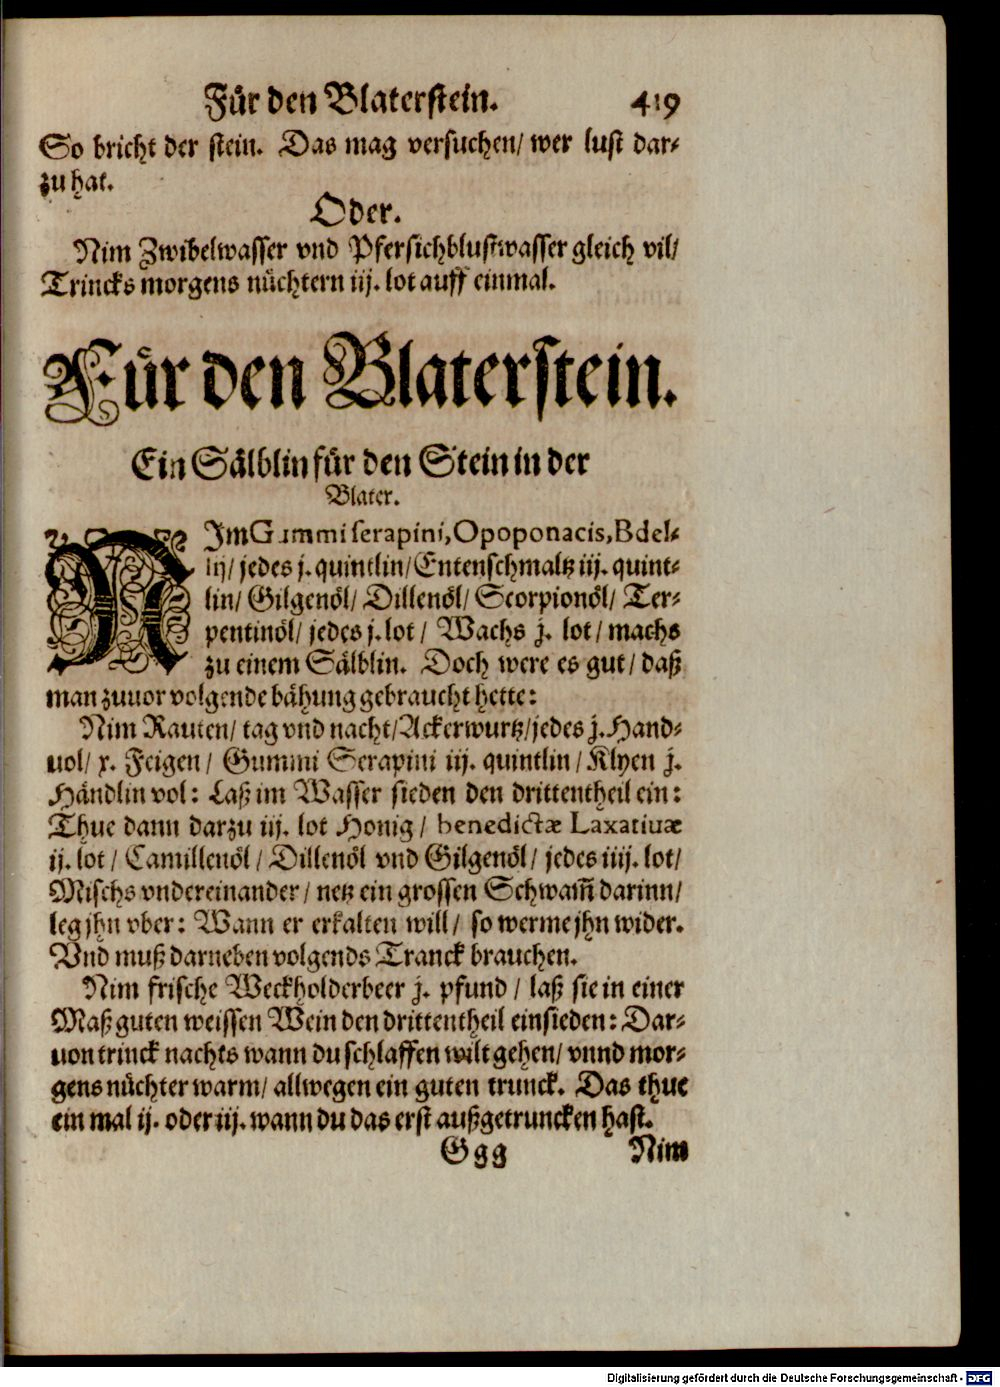 Für den Blaterstein. 419
So bricht der stein. Das mag versuchen/ wer lust dar-
zu hat.
Oder.
Nim Zwibelwasser vnd Pfersichblustwasser gleich vil/
Trincks morgens nüchtern iij. lot auff einmal.
Für den Blaterstein.
Ein Sälblin für den Stein in der
Blater.
NJm Gummi serapini, Opoponacis, Bdel-
lij/ jedes j. quintlin/ Entenschmaltz iij. quint-
lin/ Gilgenöl/ Dillenöl/ Scorpionöl/ Ter-
pentinöl/ jedes j. lot/ Wachs j. lot/ machs
zu einem Sälblin. Doch were es gut/ daß
man zuuor volgende bähung gebraucht hette:
Nim Rauten/ tag vnd nacht/ Ackerwurtz/ jedes j. Hand-
uol/ x. Feigen/ Gummi Serapini iij. quintlin/ Klyen j.
Händlin vol: Laß im Wasser sieden den drittentheil ein:
Thue dann darzu iij. lot Honig/ benedictæ Laxatiuæ
ij. lot/ Camillenöl/ Dillenöl vnd Gilgenöl/ jedes iiij. lot/
Mischs vndereinander/ netz ein grossen Schwam̃ darinn/
leg jhn vber: Wann er erkalten will/ so werme jhn wider.
Vnd muß darneben volgends Tranck brauchen.
Nim frische Weckholderbeer j. pfund/ laß sie in einer
Maß guten weissen Wein den drittentheil einsieden: Dar-
uon trinck nachts wann du schlaffen wilt gehen/ vnnd mor-
gens nüchter warm/ allwegen ein guten trunck. Das thue
ein mal ij. oder iij. wann du das erst außgetruncken hast.
Ggg Nim
Digitalisierung gefördert durch die Deutsche Forschungsgemeinschaft - DFG